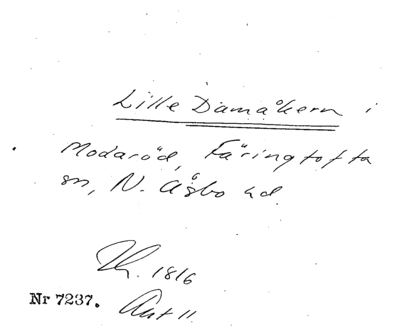 Lille Damåkern i
Modaröd, Färingtofta
sn, N. Åsbo hd.
1816
Nr 7237.